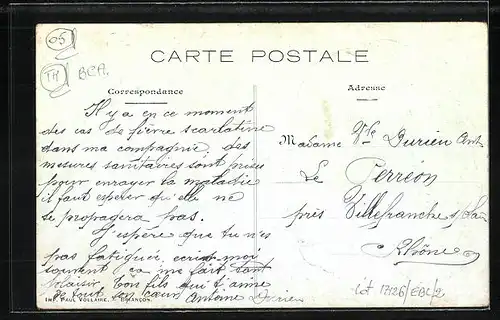 05
TM
BCA.
CARTE POSTALE
Correspondance
Adresse
Il y a en ce moment
des cas de fièvre scarlatine
dans ma compagnie, des
mesures sanitaires sont prises
pour enrayer la maladie
il faut espérer qu'elle ne
se propagera pas.
J'espère que tu n'es
pas fatiguée, moi
souvent ça me fait tant
plaisir. Ton fils qui t'aime
de tout son cœur Antoine Durieu
IMP. PAUL VOLLAIRE, BRIANÇON
Madame Vve Durieu Ant.
Le Perréon
près Villefranche s/Saô
Rhône
Lot 17126/EBL/2